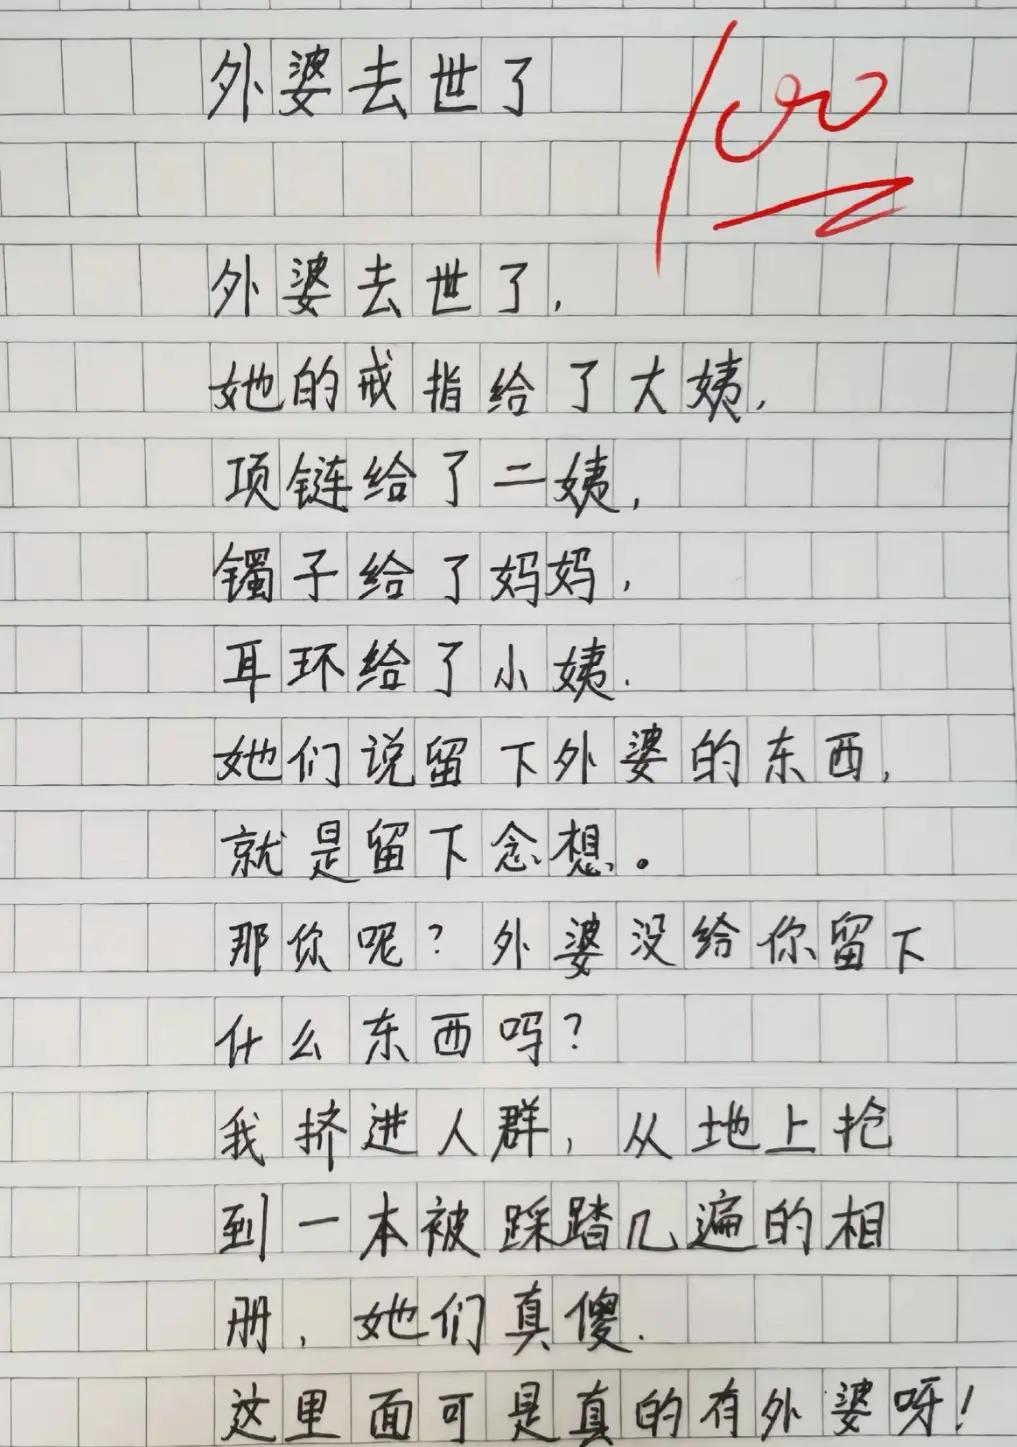 外婆去世了
100
外婆去世了,
她的戒指给了大姨,
项链给了二姨,
镯子给了妈妈,
耳环给了小姨.
她们说留下外婆的东西,
就是留下念想。
那你呢?外婆没给你留下
什么东西吗?
我挤进人群,从地上抢
到一本被踩踏几遍的相
册,她们真傻.
这里面可是真的有外婆呀!